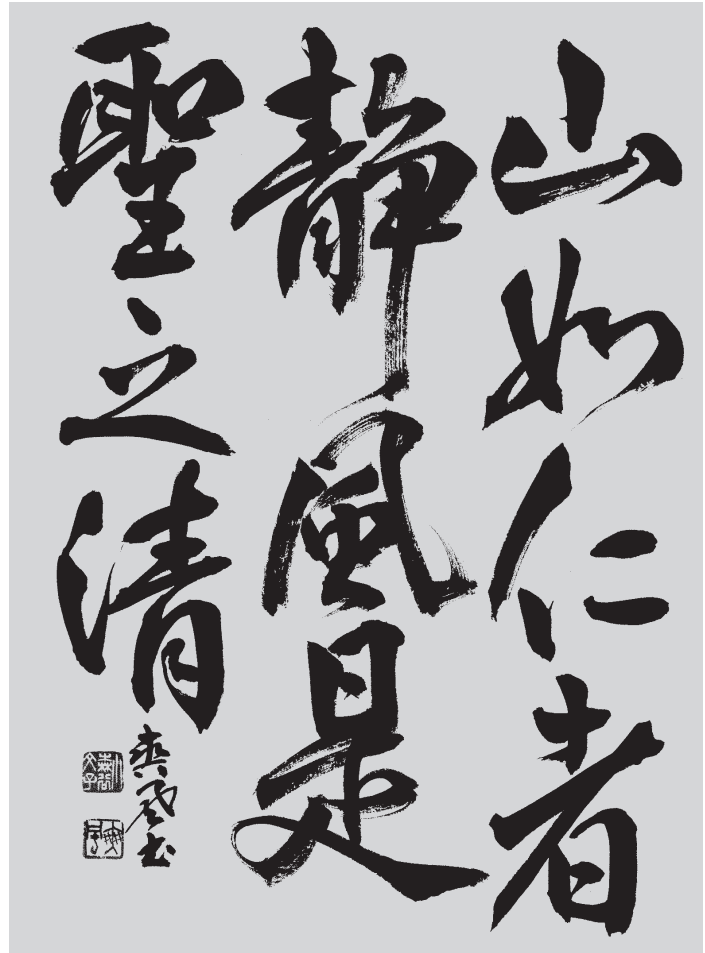 山如仁者
静風是
聖之清